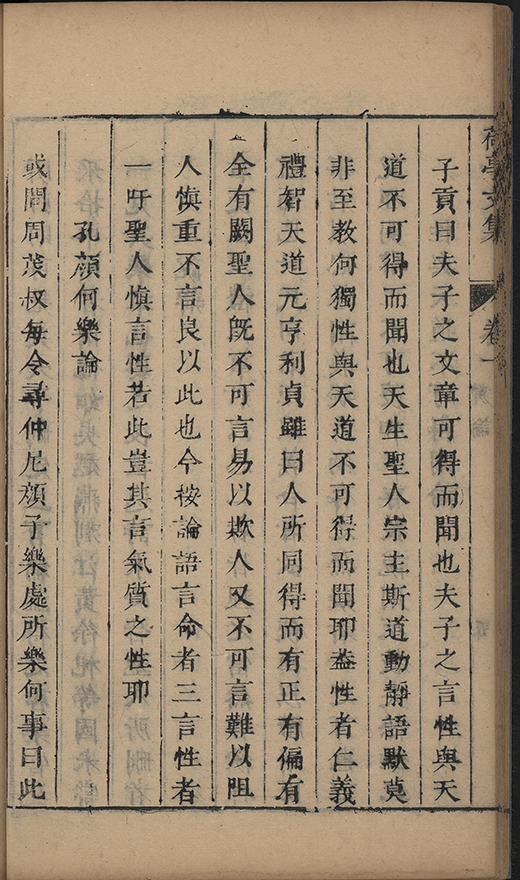 荷亭文集 卷一
子貢曰夫子之文章可得而聞也夫子之言性與天
道不可得而聞也天生聖人宗主斯道動靜語默莫
非至教何獨性與天道不可得而聞耶葢性者仁義
禮智天道元亨利貞雖曰人所同得而有正有偏有
全有闕聖人旣不可言易以欺人又不可言難以阻
人慎重不言良以此也今按論語言命者三言性者
一吁聖人慎言性若此豈其言氣質之性耶
孔顏何樂論
或問周茂叔每令尋仲尼顏子樂處所樂何事曰此